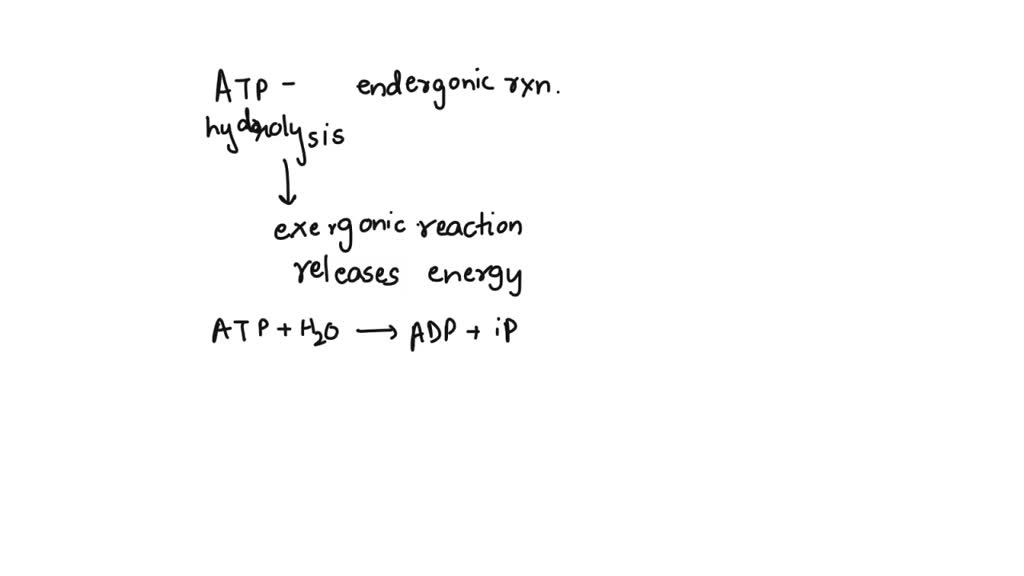 ATP - endergonic rxn.
hydrolysis
↓
exergonic reaction
releases energy
ATP + H₂O → ADP + iP